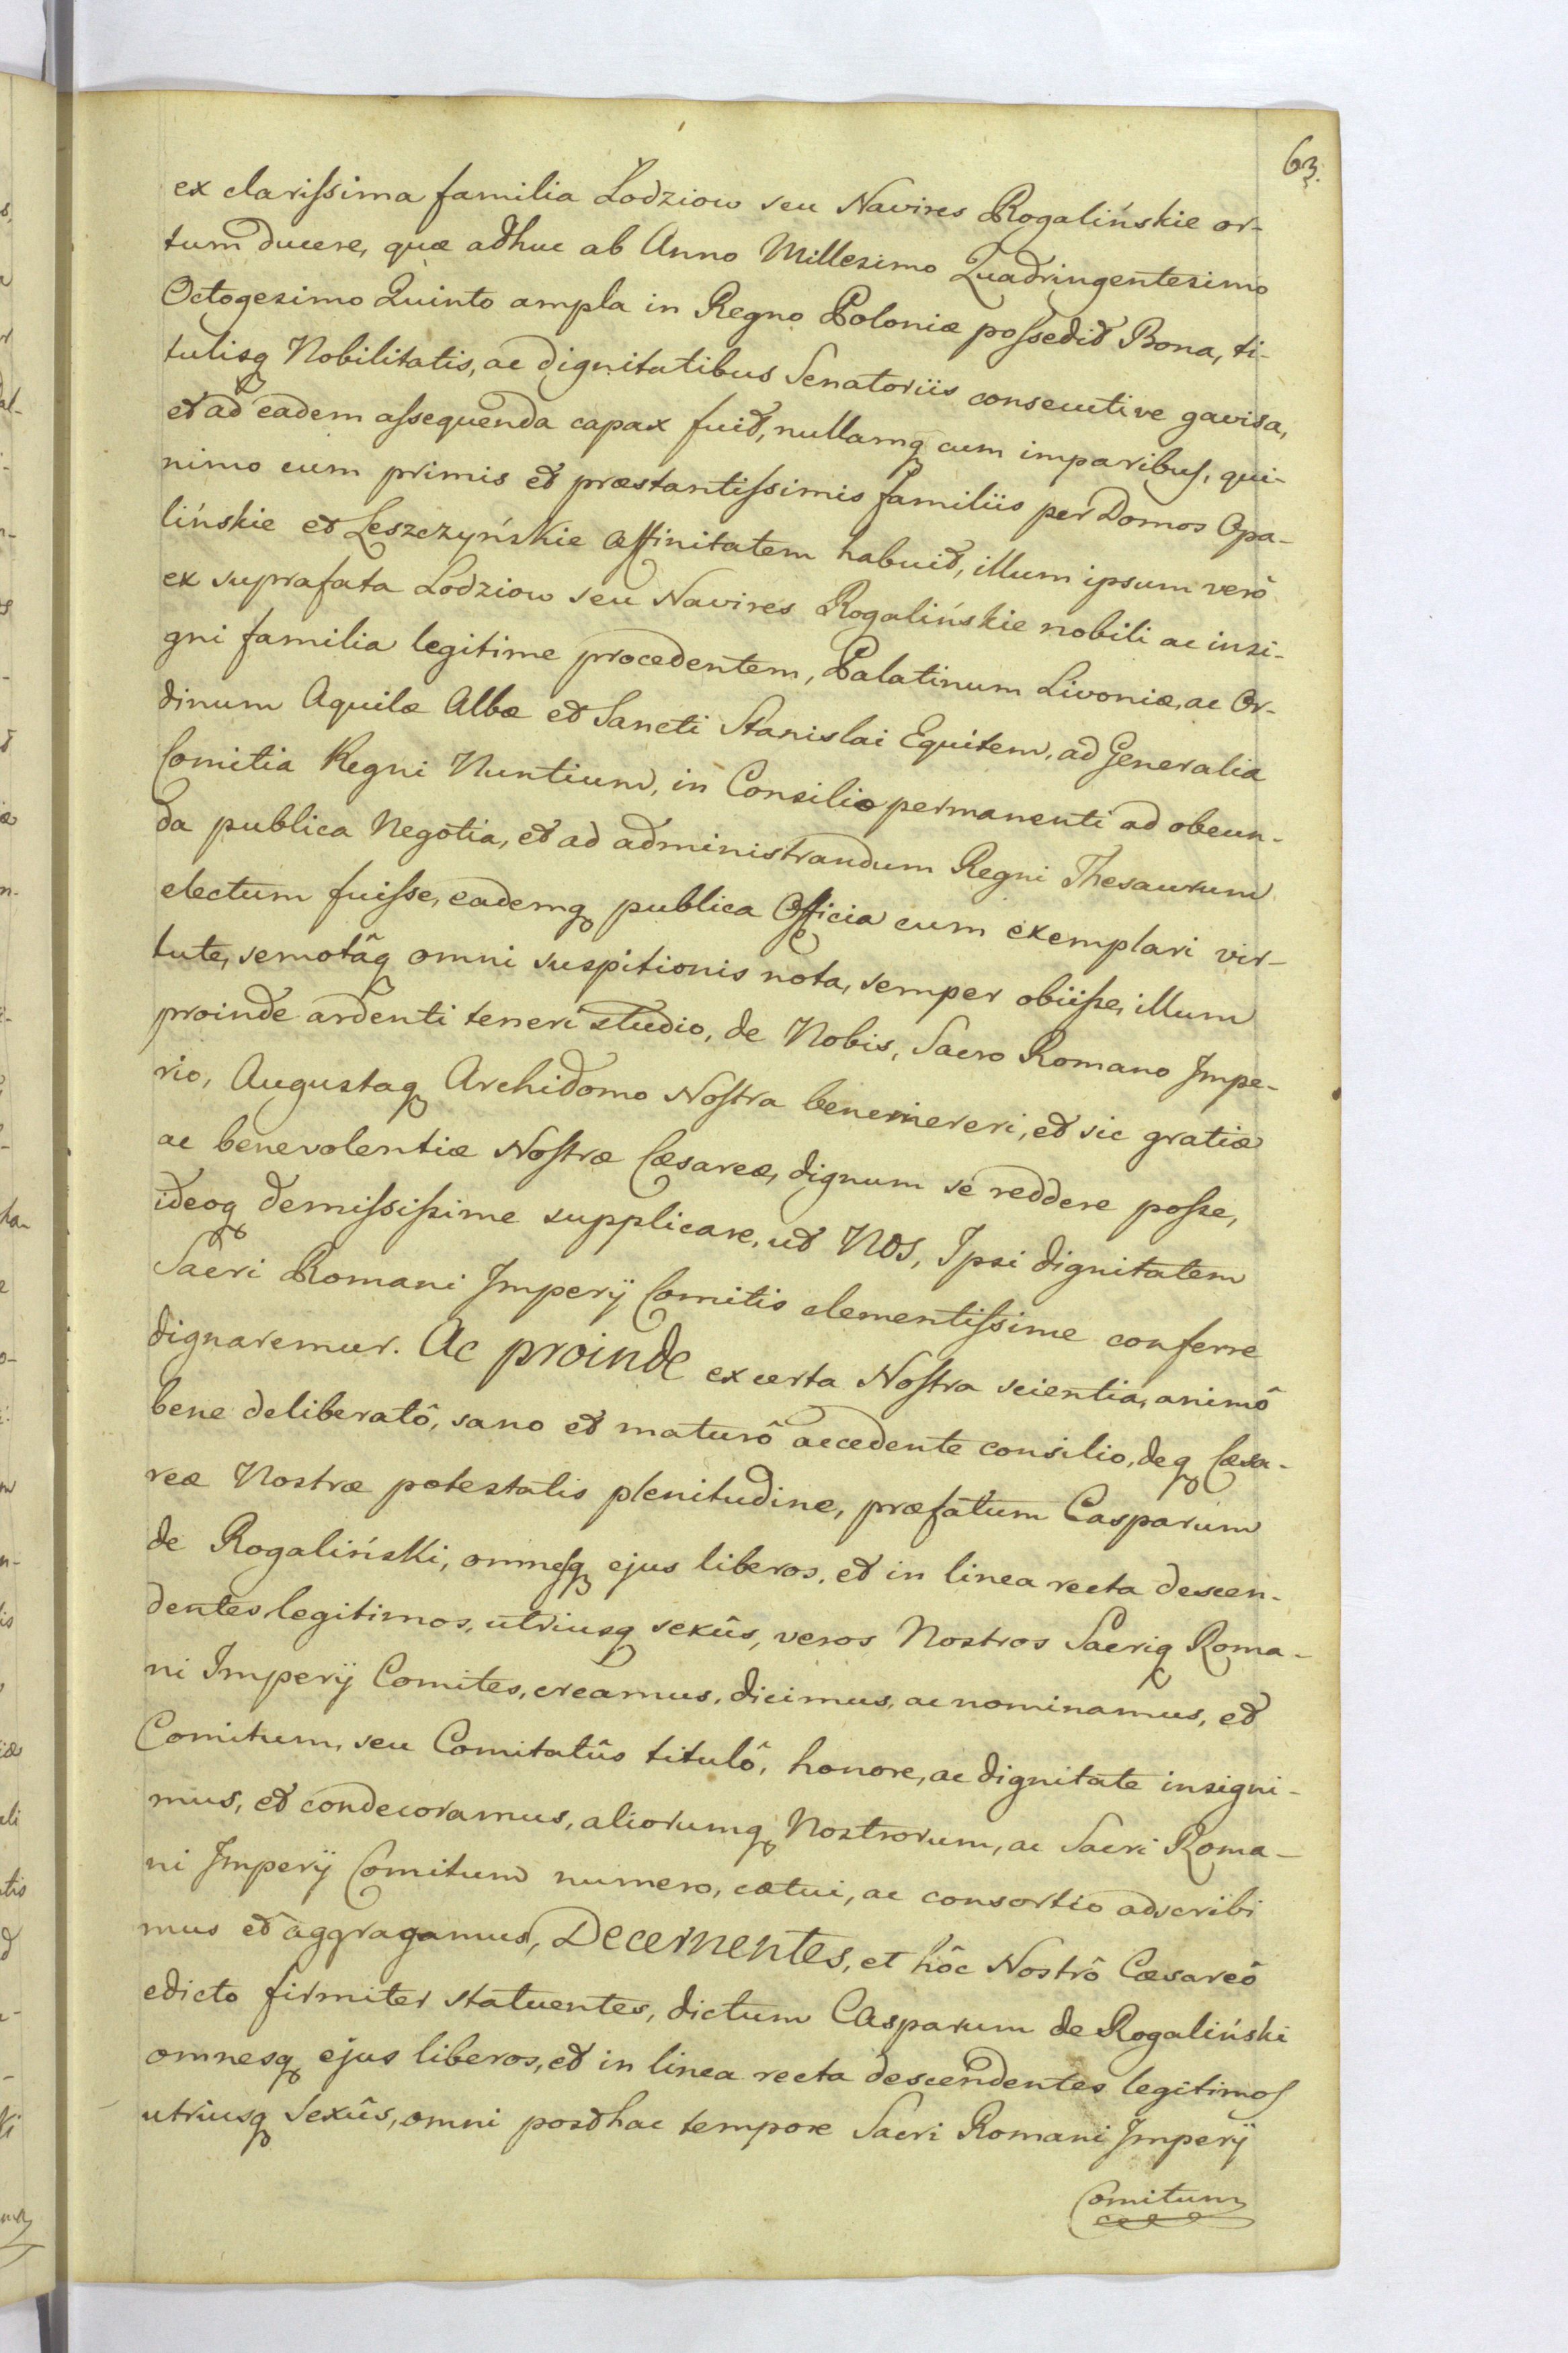 63.
ex clarissima familia Lodziow seu Navires Rogalińskie or-
tum ducere, quæ adhuc ab Anno Millesimo Quadringentesimo
Octogesimo Quinto ampla in Regno Poloniæ possedit Bona, ti-
tulisq Nobilitatis, ac dignitatibus Senatoriis consecutive gavisa,
et ad eadem assequenda capax fuit, nullamq cum imparibus, qui-
nimo cum primis et præstantissimis familiis per Domos Opa-
lińskie et Leszczyńskie affinitatem habuit, illum ipsum verô
ex suprafata Lodziow seu Navires Rogalińskie nobili ac insi-
gni familia legitime procedentem, Palatinum Livoniæ, ac Or-
dinum Aquilæ Albæ et Sancti Stanislai Equitem, ad Generalia
Comitia Regni Nuntium, in Consilio permanenti ad obeun-
da publica Negotia, et ad administrandum Regni Thesaurum
electum fuisse, eademq publica Officia cum exemplari vir-
tute, semotâq omni suspitionis nota, semper obiisse, illum
proinde ardenti teneri studio, de Nobis, Sacro Romano Impe-
rio, Augustaq Archidomo Nostra benemereri, et sic gratiæ
ac benevolentiæ Nostræ Cæsareæ, dignum se reddere posse,
ideoq demississime supplicare, ut NOS, Ipsi dignitatem
Sacri Romani Imperij Comitis clementissime conferre
dignaremur. Ac proinde ex certa Nostra scientia, animô
bene deliberatô, sano et maturô accedente consilio, deq Cæsa-
reæ Nostræ potestatis plenitudine, præfatum Casparum
de Rogaliński, omnesq ejus liberos, et in linea recta descen-
dentes legitimos, utriusq sexûs, veros Nostros Sacriq Roma-
ni Imperij Comites, creamus, dicimus, ac nominamus, et
Comitum, seu Comitatûs titulô, honore, ac dignitate insigni-
mus, et condecoramus, aliorumq Nostrorum, ac Sacri Roma-
ni Imperij Comitum numero, cætui, ac consortio adscribi
mus et aggragamus, Decernentes, et hôc Nostrô Cæsareô
edicto firmiter statuentes, dictum Casparum de Rogaliński
omnesq ejus liberos, et in linea recta descendentes legitimos
utriusq Sexûs, omni posthac tempore Sacri Romani Imperij
Comitum